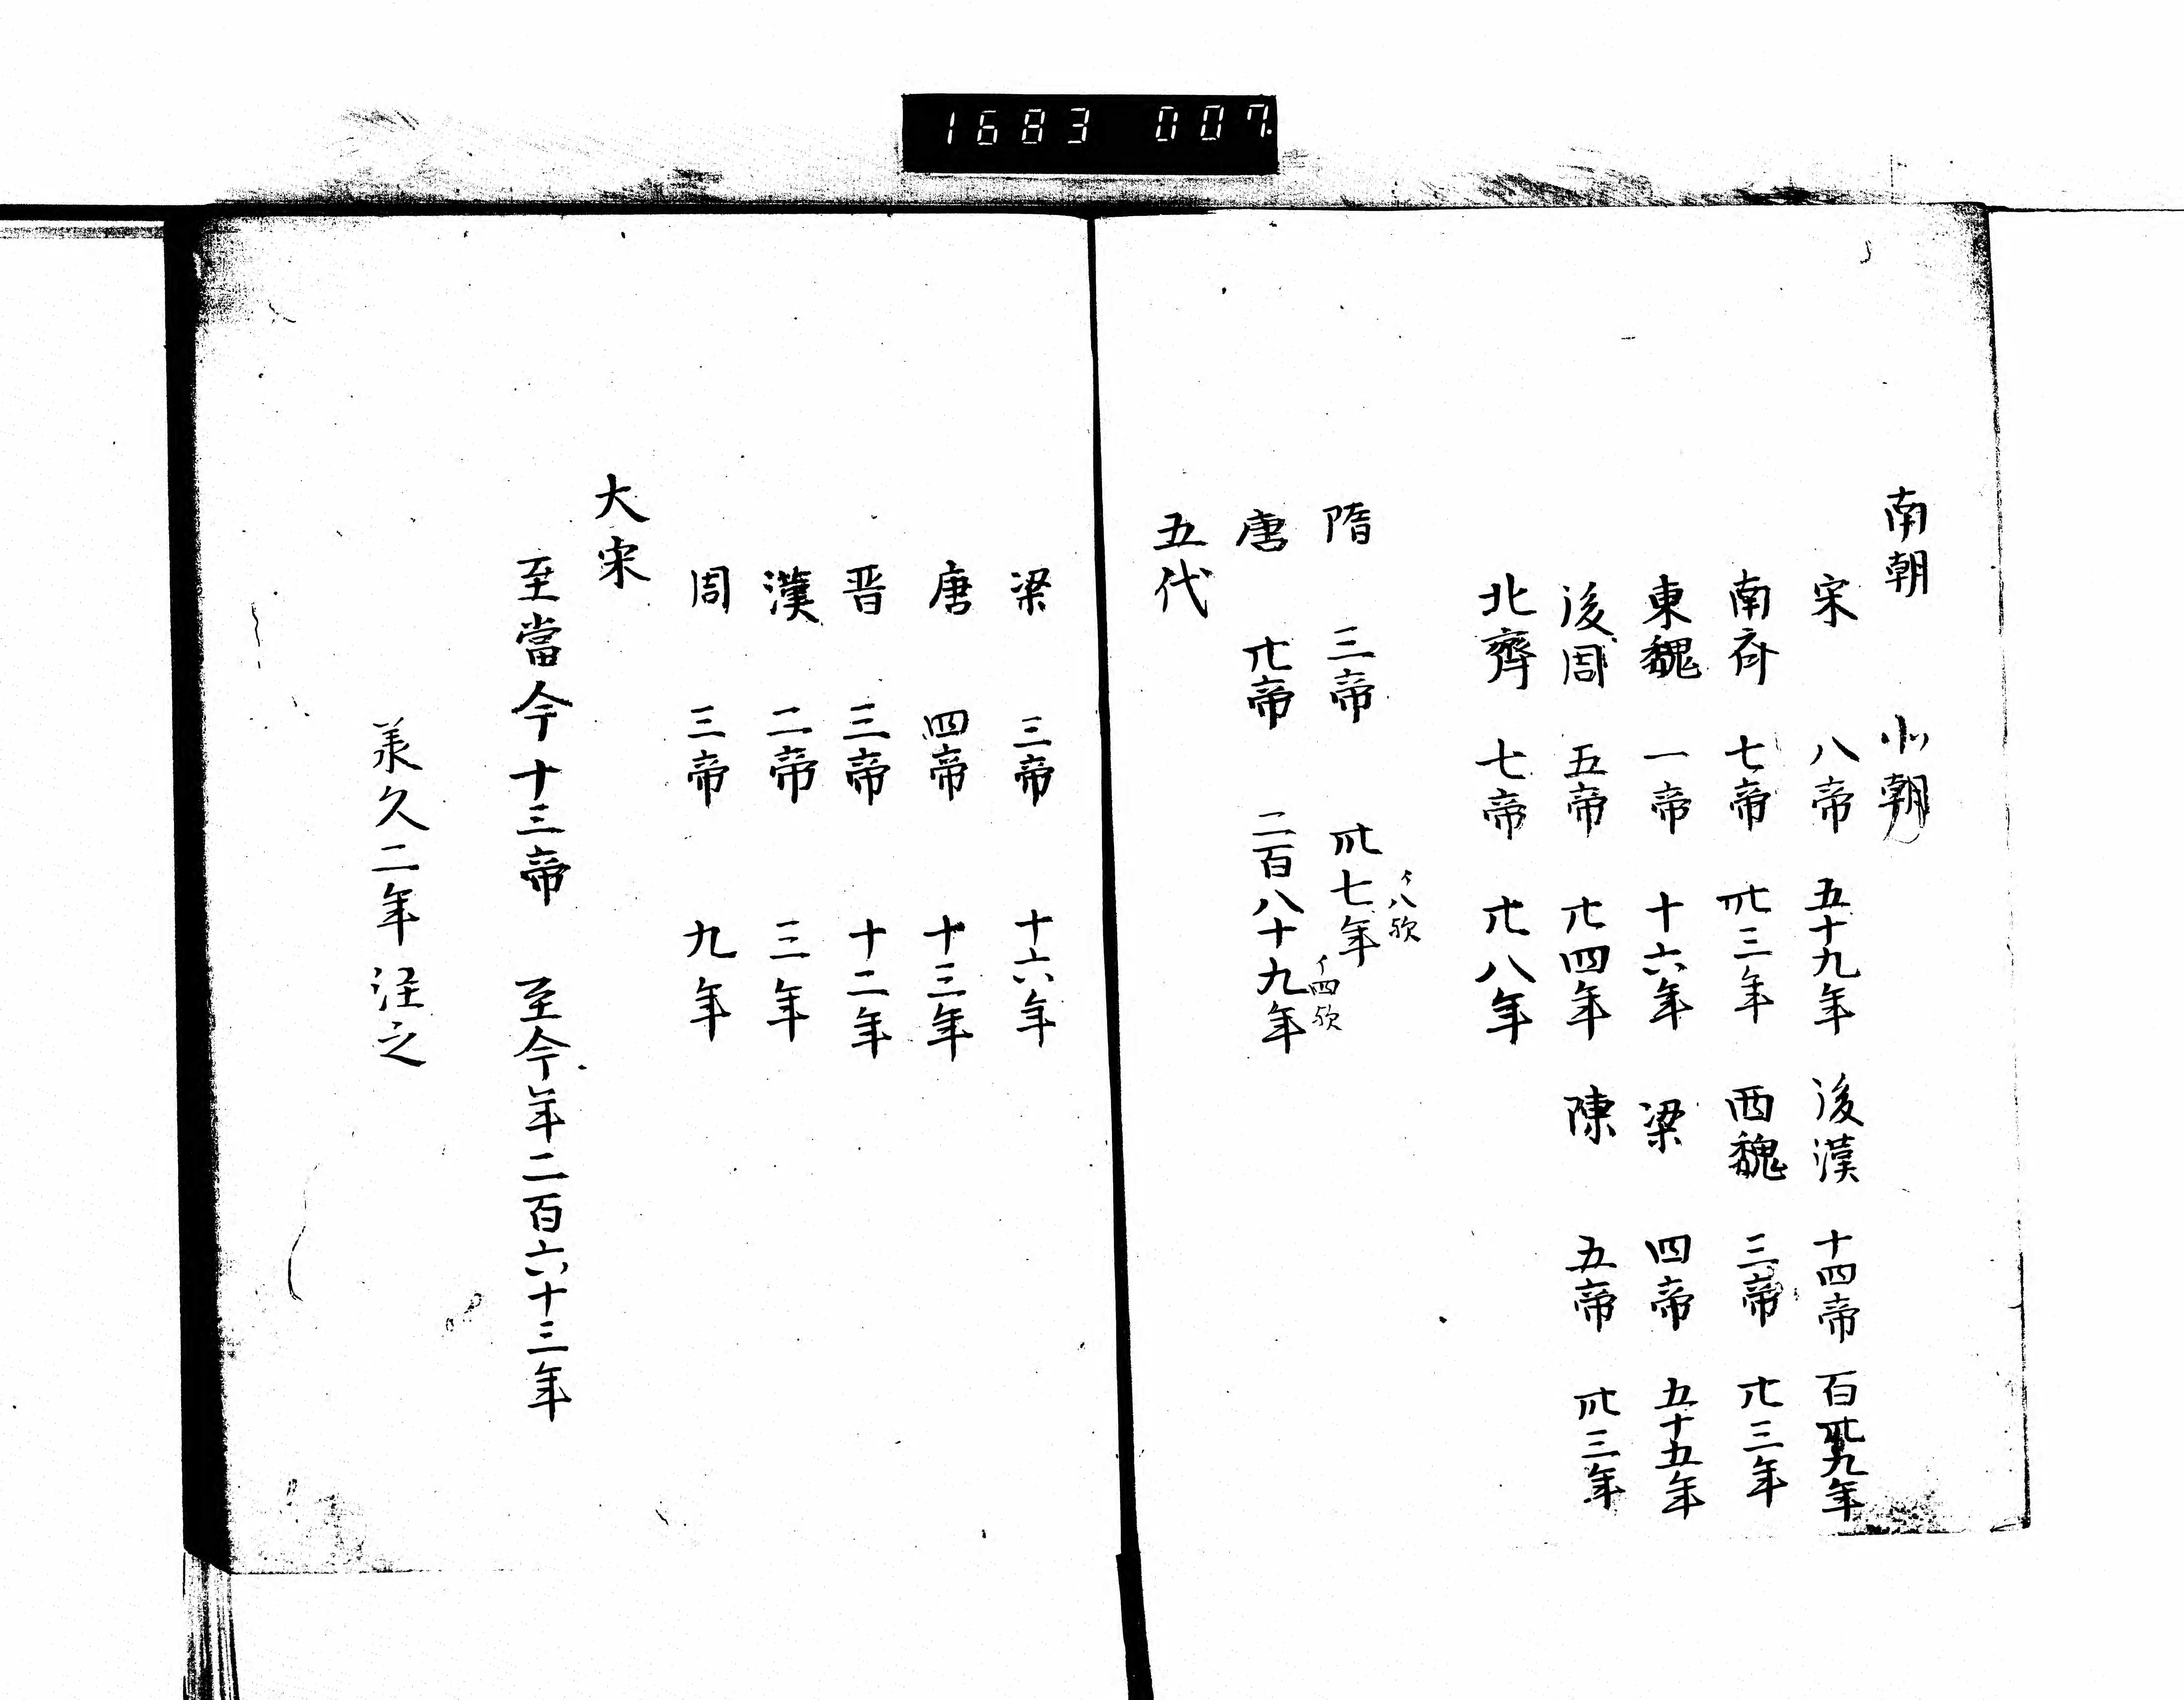 1683 007
南朝 北朝
宋 八帝 五十九年 後漢 十四帝 百卌九年
南斉 七帝 卅三年 西魏 三帝 廿三年
東魏 一帝 十六年 梁 四帝 五十五年
後周 五帝 廿四年 陳 五帝 卅三年
北齊 七帝 廿八年
イ八欤
隋 三帝 卅七年
イ四欤
唐 廿帝 二百八十九年
五代
梁 三帝 十六年
唐 四帝 十三年
晋 三帝 十二年
漢 二帝 三年
周 三帝 九年
大宋
至當今十三帝 至今年二百六十三年
承久二年注之